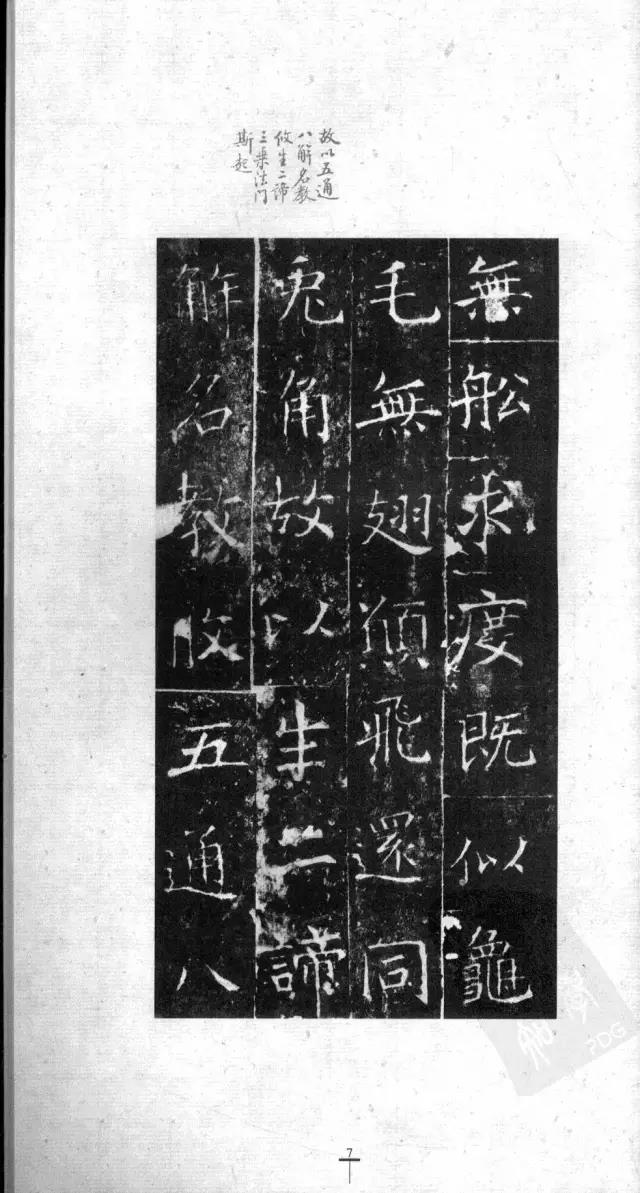 故以五通
八解名教
攸生二諦
三乘法门
斯起
無舩求度既似龜
毛無翅願飛還同
兔角故以生二諦
解名教攸五通八
PDG
7